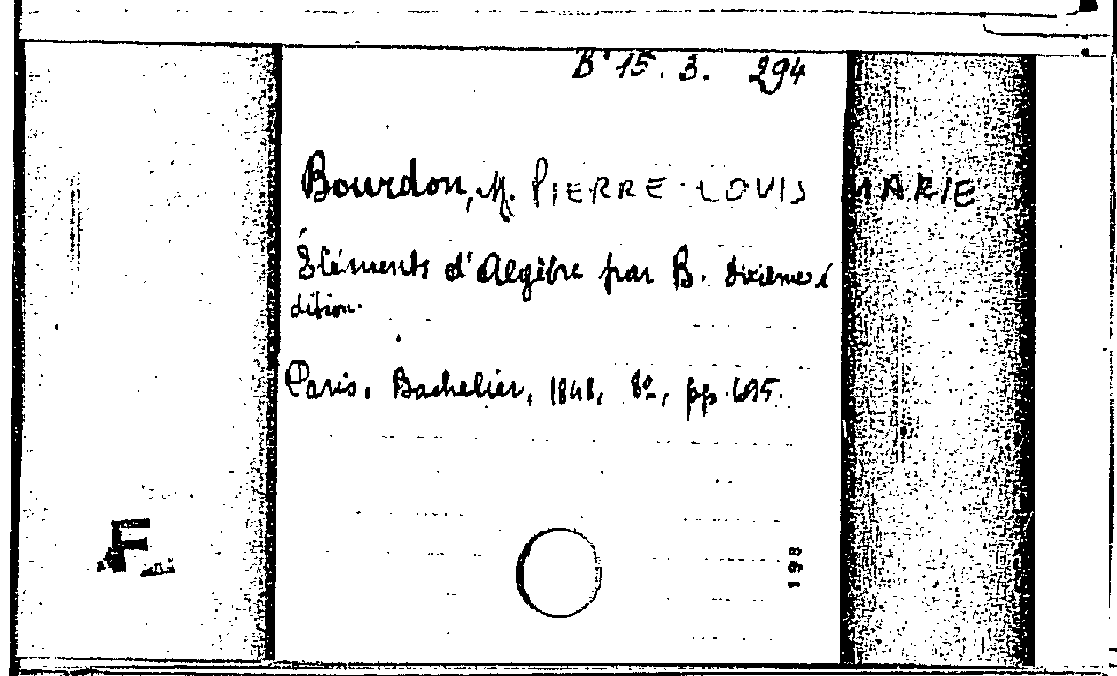 B 15. 3. 294
Bourdon, M. PIERRE-LOUIS MARIE
Éléments d'Algèbre par B. Dixième é
dition.
Paris, Bachelier, 1848, 8º, pp. 695.
198